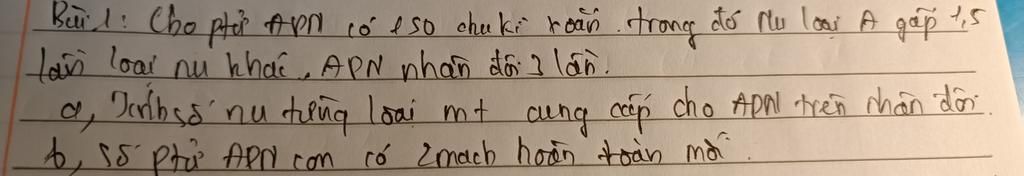 Bài 1: Cho phtử ADN có 150 chu kì xoắn. trong đó Nu loại A gấp 1,5
lần loại nu khác, ADN nhân đôi 3 lần.
a, Tính số nu từng loại mt cung cấp cho ADN trên nhân đôi.
b, số ptử ADN con có 2 mạch hoàn toàn mới.